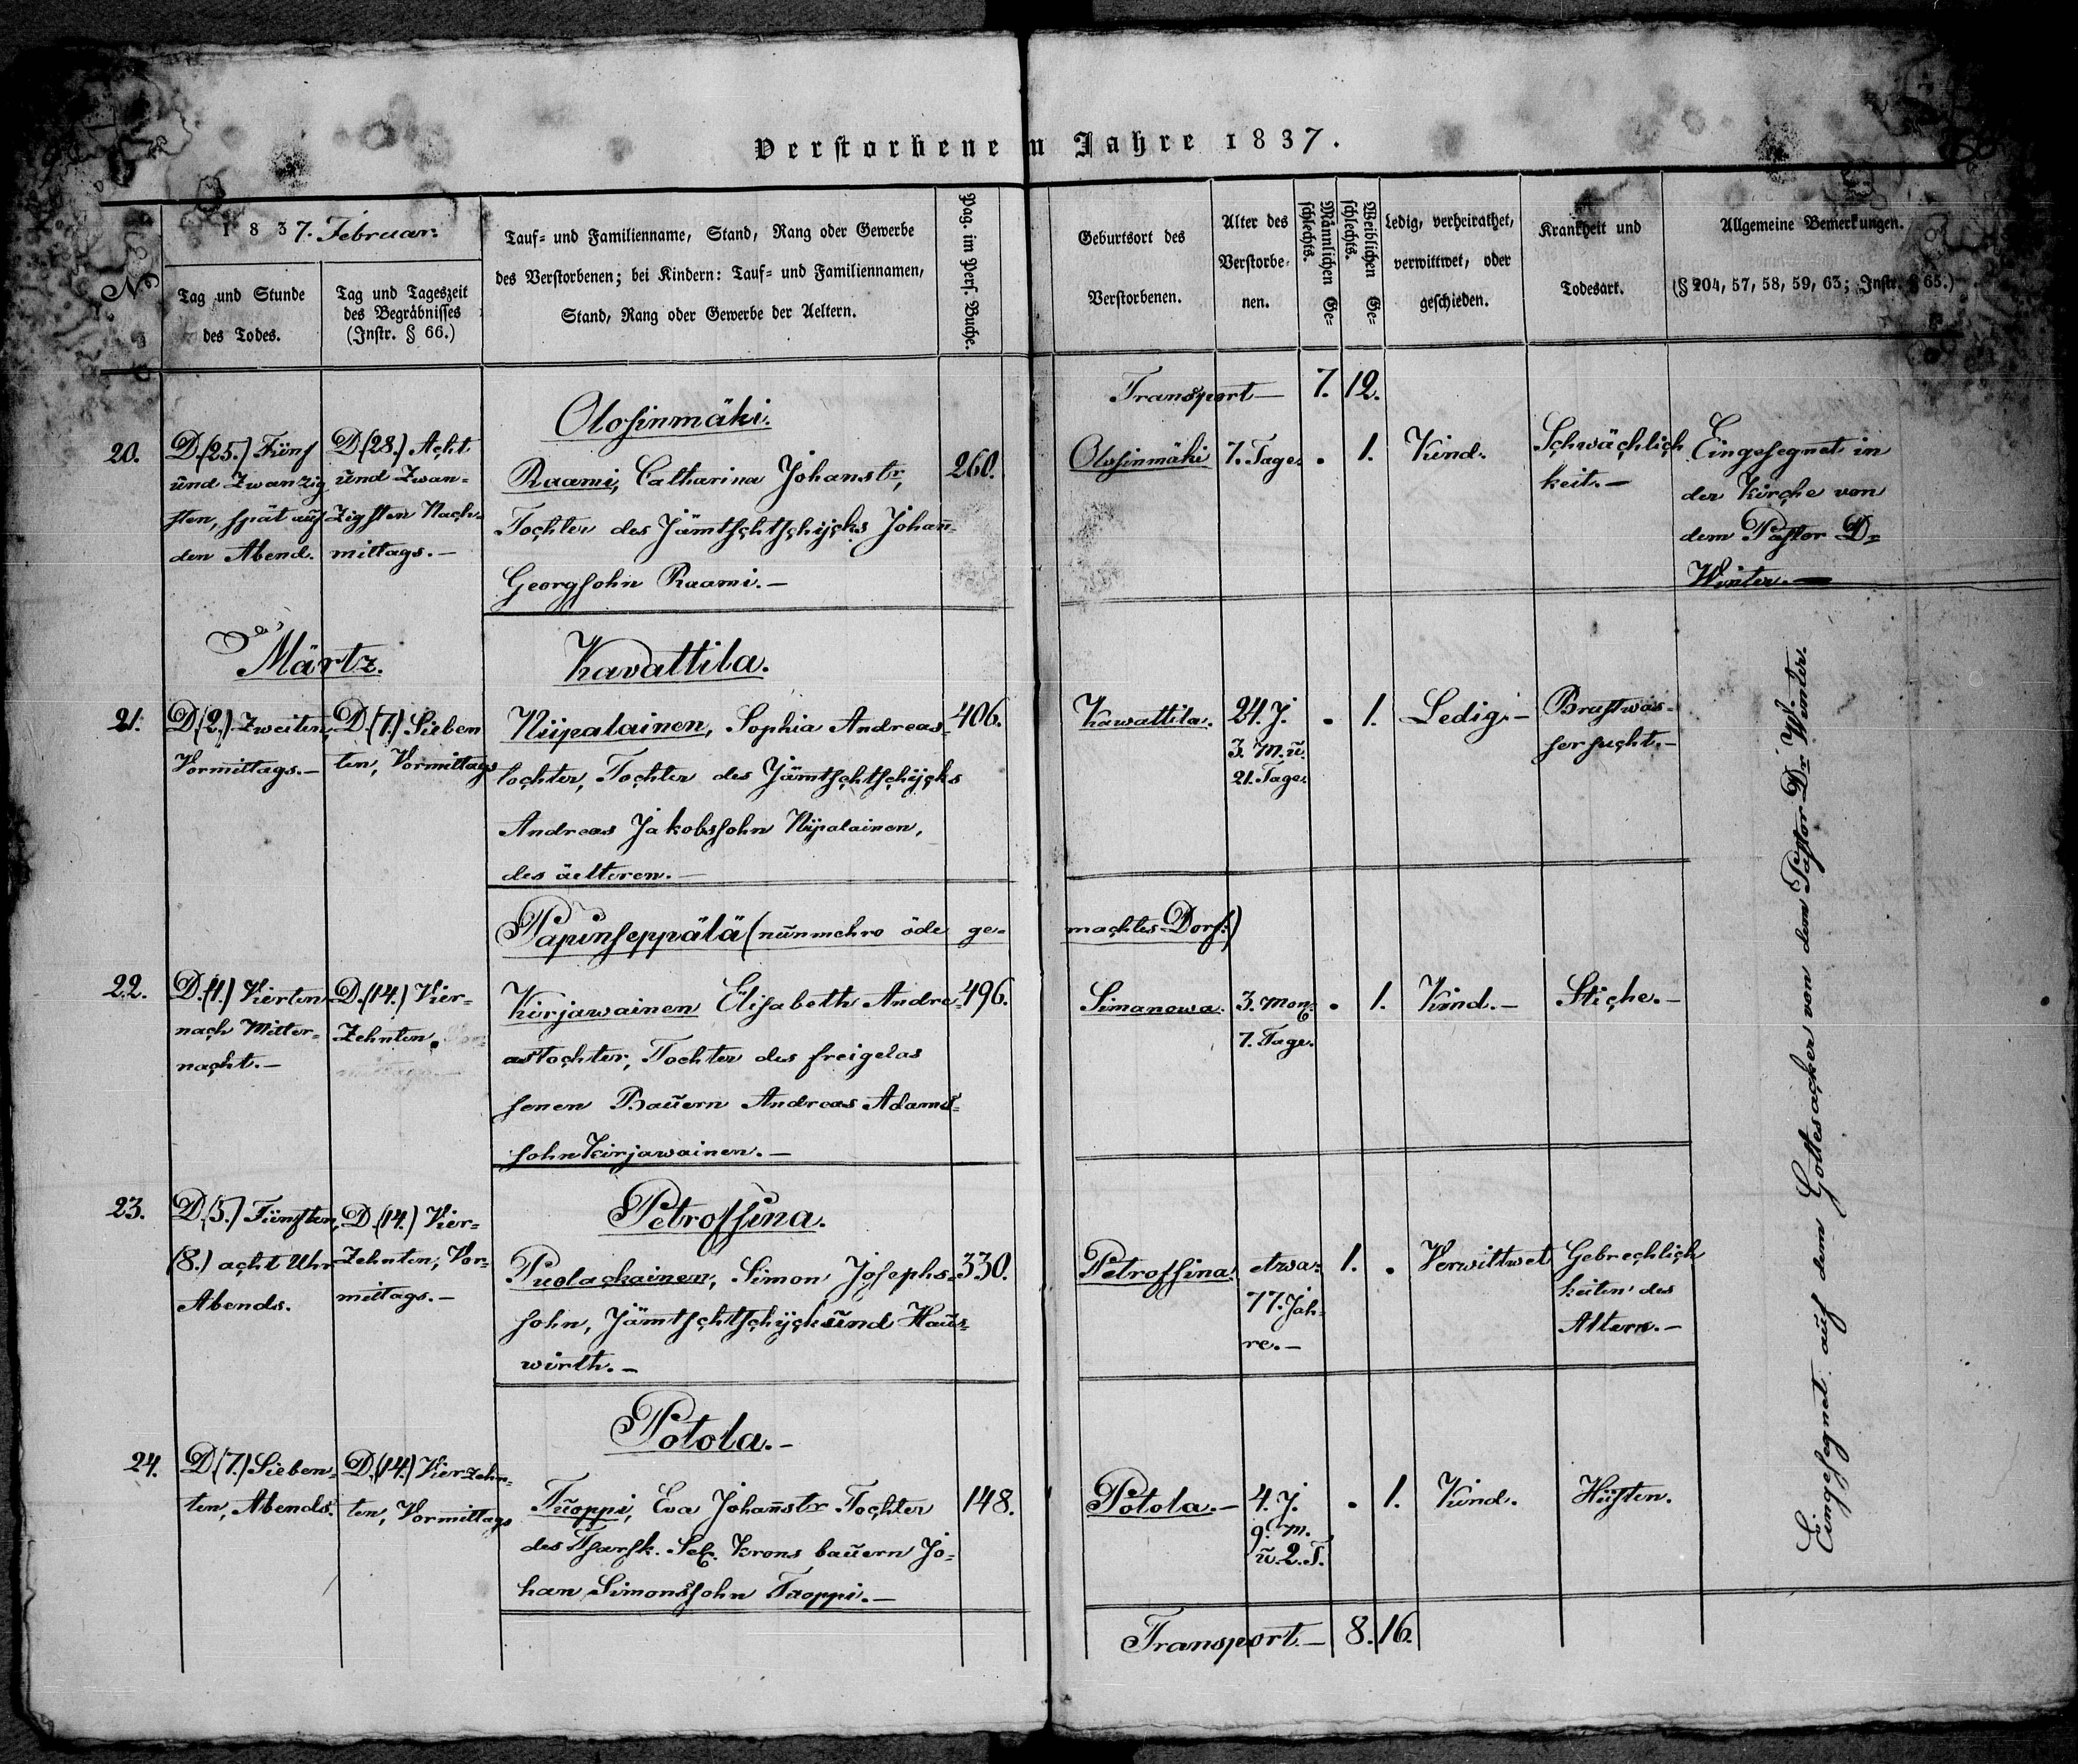 Verstorbene im Jahre 1837.
No
1837. Februar.
Tag und Stunde
des Todes.
Tag und Tageszeit
des Begräbnisses
(Instr. § 66.)
Tauf- und Familienname, Stand, Rang oder Gewerbe
des Verstorbenen; bei Kindern: Tauf- und Familiennamen,
Stand, Rang oder Gewerbe der Aeltern.
Pag. im Pers. Buche.
Geburtsort des
Verstorbenen.
Alter des
Verstorbe-
nen.
Männlichen Ge-
schlechts.
Weiblichen Ge-
schlechts.
Ledig, verheirathet,
verwittwet, oder
geschieden.
Krankheit und
Todesart.
Allgemeine Bemerkungen.
(§ 204, 57, 58, 59, 63; Instr. § 65.)
Transport — 7. 12.
Olosinmäki.
20.
D. (25.) Fünf
und Zwanzig
sten, spät auf
den Abend.
D. (28.) Acht
und Zwan-
zigsten Nach-
mittags. —
Raami, Catharina Johanstr,
Tochter des Jämtschtschijcks Johan̄
Georgsohn Raami. —
260.
Olosinmäki
7. Tage.
. 1.
Kind.
Schwächlich
keit. —
Eingesegnet in
der Kirche von
dem Pastor Dr
Winter. —
Märtz.
Kavattila.
21.
D. (2.) Zweiten,
Vormittags. —
D. (7.) Sieben
ten, Vormittags
Niipalainen, Sophia Andreas-
tochter, Tochter des Jämtschtschijcks
Andreas Jakobssohn Nijpalainen,
des äelteren. —
406.
Kawattila.
24. J.
3. M. ū
21. Tage.
. 1.
Ledig. —
Brustwas-
sersucht. —
Papinseppälä (nunmehro öde ge-
machtes Dorf.)
22.
D. (1.) Vierten
nach Mitter-
nacht. —
D. (14.) Vier-
Zehnten.
Kirjawainen Elisabeth Andre-
astochter, Tochter des freigelas
senen Bauern Andreas Adams-
sohn Kirjawainen. —
496.
Simanowa.
3. Mon.
7. Tage.
. 1.
Kind. —
Stiche. —
Petrossina.
23.
D. (5.) Fünften,
(8.) acht Uhr
Abends.
D. (14.) Vier-
Zehnten, Vor-
mittags. —
Puolachainen, Simon Josephs-
sohn, Jämtschtschijck und Haus-
wirth. —
330.
Petrossina.
etwa.
77. Jah-
re. —
1. .
Verwittwet
Gebrechlich
keiten des
Alters. —
Potola. —
24.
D. (7.) Sieben-
ten, Abends.
D. (14.) Vierzehn-
ten, Vormittags
Tuoppi, Eva Johan̄str Tochter
des Tsarsk. Sel. Krons bauern Jo-
han Simonssohn Tuoppi. —
148.
Potola. —
4. J.
9. M.
ū. 2. T.
. 1.
Kind.
Husten.
Eingesegnet auf dem Gottesacker von dem Pastor Dr Winter.
Transport — 8. 16.